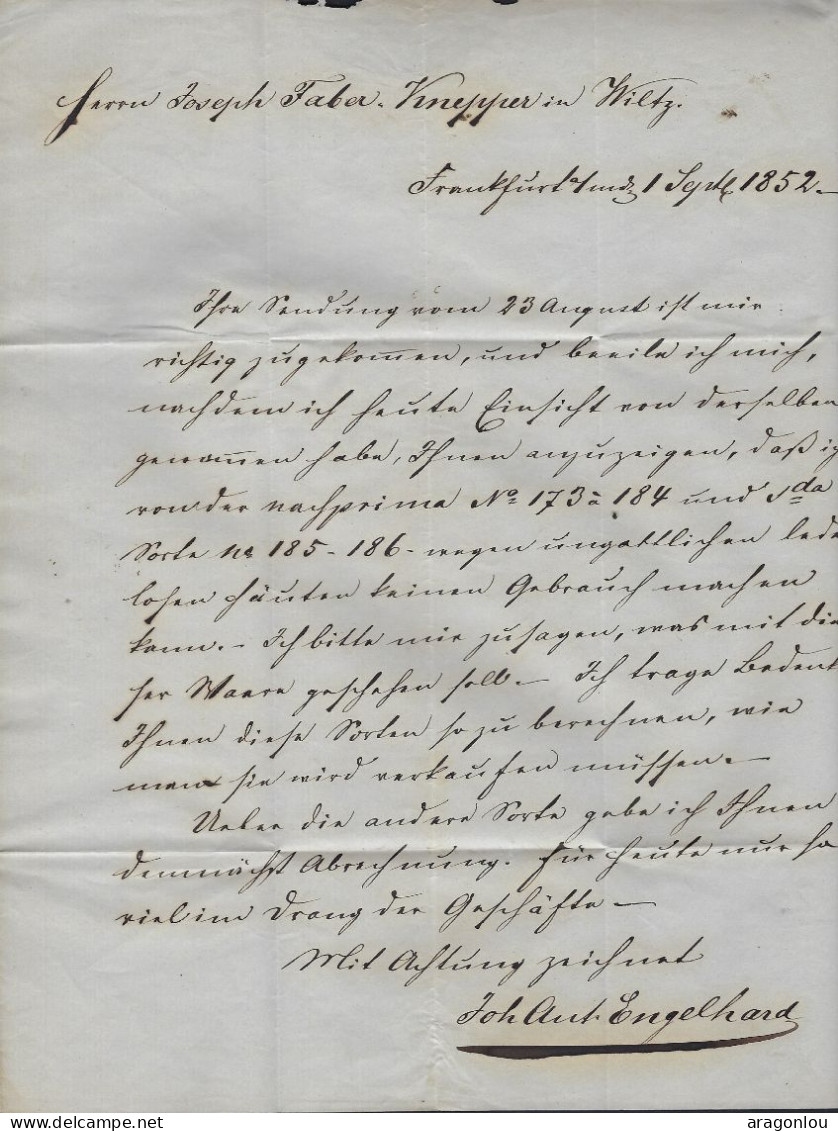 Herrn Joseph Faber-Knepper in Wiltz.
Frankfurt a/m d 1 Sept 1852.
Ihre Sendung vom 23 August ist mir
richtig zugekomen, und beeile ich mich,
nachdem ich heute Einsicht von derselben
genomen habe, Ihnen anzuzeigen, daß ich
von der nachprima No 173 a 184 und
Sorte No 185-186- wegen leder
losen Häuten keinen Gebrauch machen
kann. – Ich bitte mir zu sagen, was mit die
ser Waare geschehen soll. – Ich trage Bedenk
Ihnen diese Sorten so zu berechnen, wie
man sie wird verkaufen müssen. –
Ueber die andere Sorte gebe ich Ihnen
demnächst Abrechnung. Für heute nur so
viel im Drang der Geschäfte –
Mit Achtung zeichnet
Joh Ant. Engelhard
aragonlou